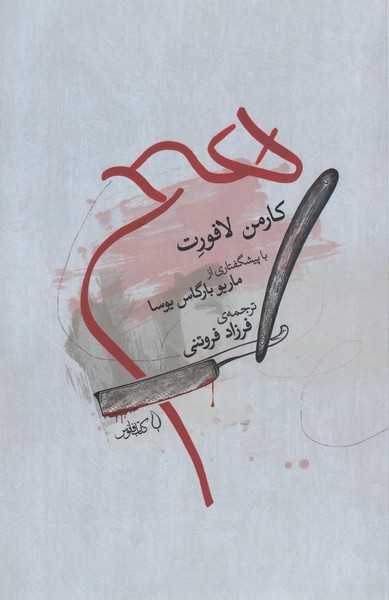 هیچ
کارمن لافورِت
با پیشگفتاری از
ماریو بارگاس یوسا
ترجمه‌ی
فرزاد فروتنی
کتاب فانوس